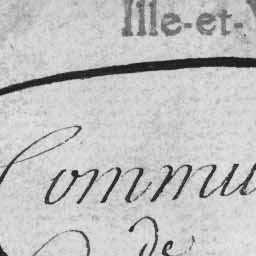 Ille-et-V
Commu
de